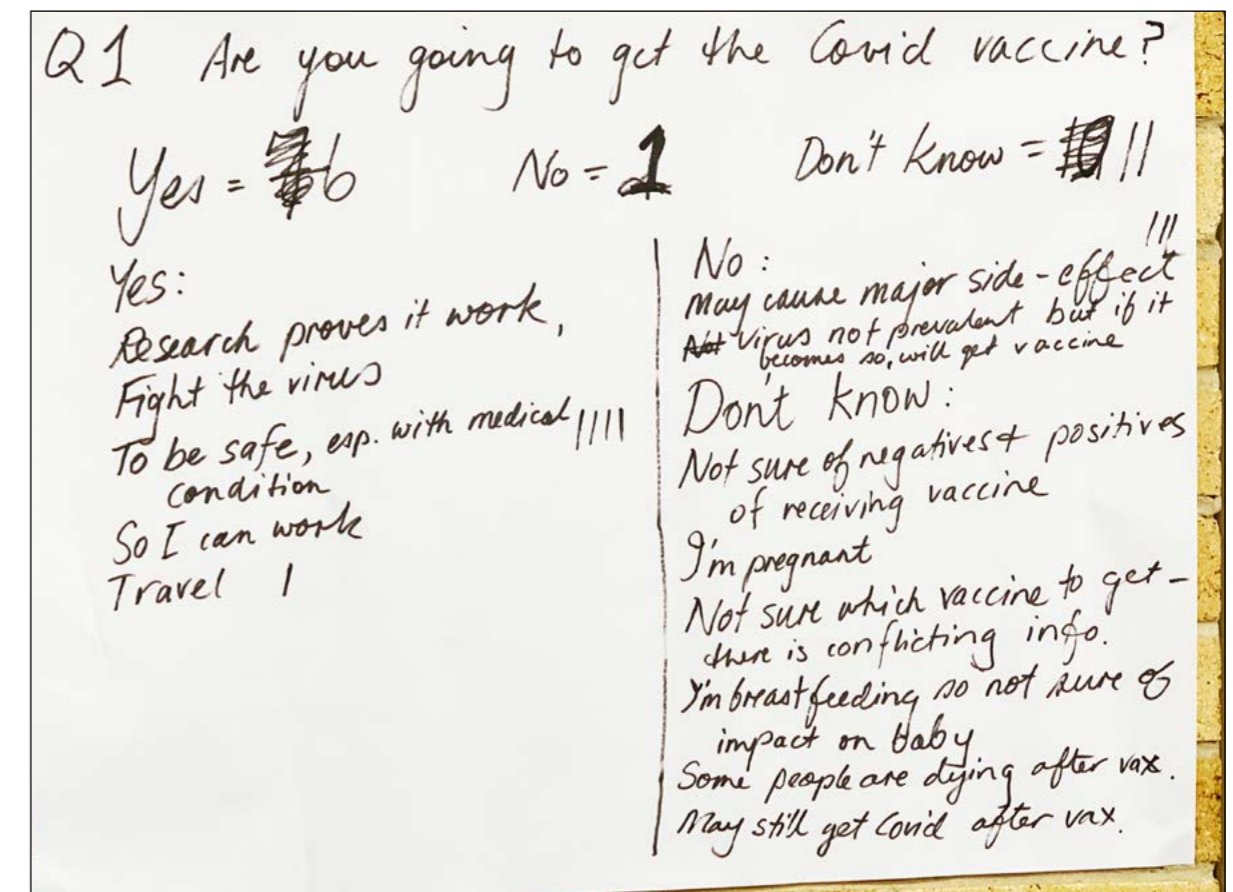 Q1 Are you going to get the Covid vaccine?
Yes = 6 No = 1 Don't know = 11
Yes:
Research proves it work,
Fight the virus
To be safe, esp. with medical ||||
condition
So I can work
Travel |
No: |||
May cause major side-effect
Not virus not prevalent but if it
becomes so, will get vaccine
Don't know:
Not sure of negatives + positives
of receiving vaccine
I'm pregnant
Not sure which vaccine to get -
there is conflicting info.
I'm breastfeeding so not sure of
impact on baby
Some people are dying after vax.
May still get Covid after vax.